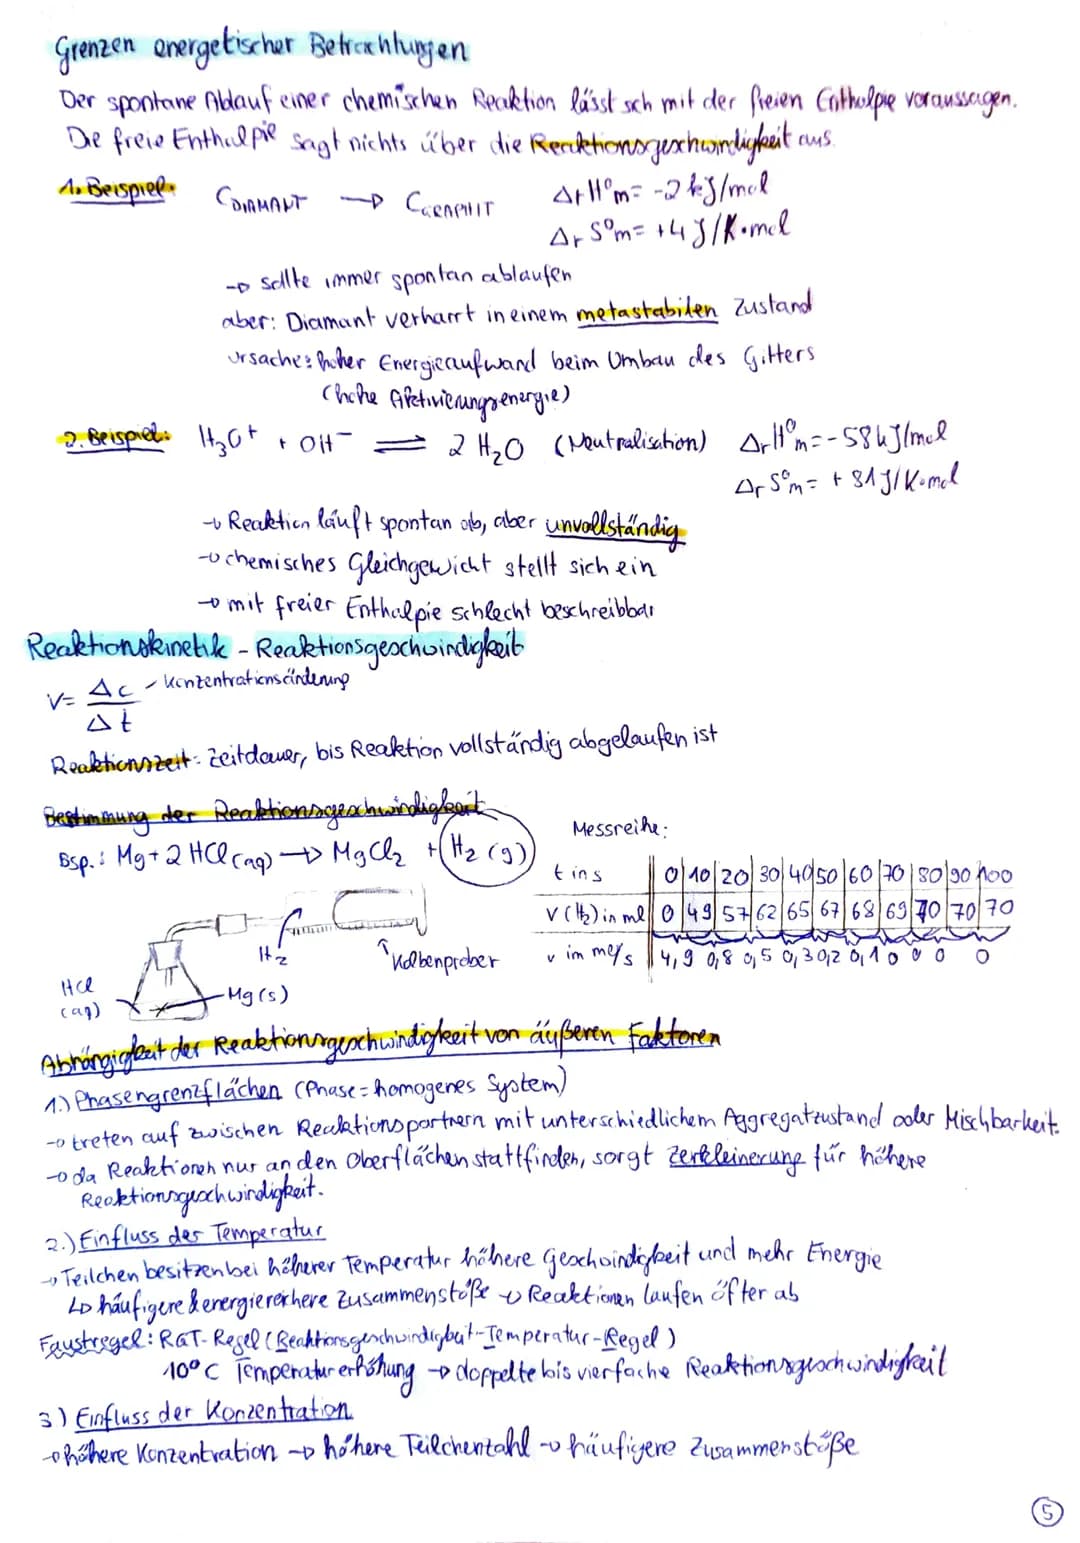 Grenzen energetischer Betrachtungen
Der spontane Ablauf einer chemischen Reaktion lässt sich mit der freien Enthalpie voraussagen.
Die freie Enthalpie sagt nichts über die Reaktionsgeschwindigkeit aus.
1. Beispiel: C DIAMANT → C GRAPHIT ΔrH°m = -2 kJ/mol
ΔrS°m = +4 J/K·mol
→ sollte immer spontan ablaufen
aber: Diamant verharrt in einem metastabilen Zustand
Ursache: hoher Energieaufwand beim Umbau des Gitters
(hohe Aktivierungsenergie)
2. Beispiel: H₃O⁺ + OH⁻ ⇌ 2 H₂O (Neutralisation) ΔrH°m = -58 kJ/mol
ΔrS°m = +81 J/K·mol
→ Reaktion läuft spontan ab, aber unvollständig
→ chemisches Gleichgewicht stellt sich ein
→ mit freier Enthalpie schlecht beschreibbar
Reaktionskinetik - Reaktionsgeschwindigkeit
v = Δc - Konzentrationsänderung
Δt
Reaktionszeit: Zeitdauer, bis Reaktion vollständig abgelaufen ist
Bestimmung der Reaktionsgeschwindigkeit
Messreihe:
Bsp.: Mg + 2 HCl (aq) → MgCl₂ + H₂ (g)
t in s 0 10 20 30 40 50 60 70 80 90 100
V (H₂) in ml 0 49 57 62 65 67 68 69 70 70 70
v in ml/s 4,9 0,8 0,5 0,3 0,2 0,1 0 0 0 0
H₂
Kolbenprober
HCl
(aq)
Mg (s)
Abhängigkeit der Reaktionsgeschwindigkeit von äußeren Faktoren
1.) Phasengrenzflächen (Phase = homogenes System)
→ treten auf zwischen Reaktionspartnern mit unterschiedlichem Aggregatzustand oder Mischbarkeit.
→ da Reaktionen nur an den Oberflächen stattfinden, sorgt Zerkleinerung für höhere
Reaktionsgeschwindigkeit.
2.) Einfluss der Temperatur
→ Teilchen besitzen bei höherer Temperatur höhere Geschwindigkeit und mehr Energie
↳ häufigere & energiereichere Zusammenstöße → Reaktionen laufen öfter ab
Faustregel: RGT-Regel (Reaktionsgeschwindigkeit-Temperatur-Regel)
10°C Temperaturerhöhung → doppelte bis vierfache Reaktionsgeschwindigkeit
3) Einfluss der Konzentration
→ höhere Konzentration → höhere Teilchenzahl → häufigere Zusammenstöße
5